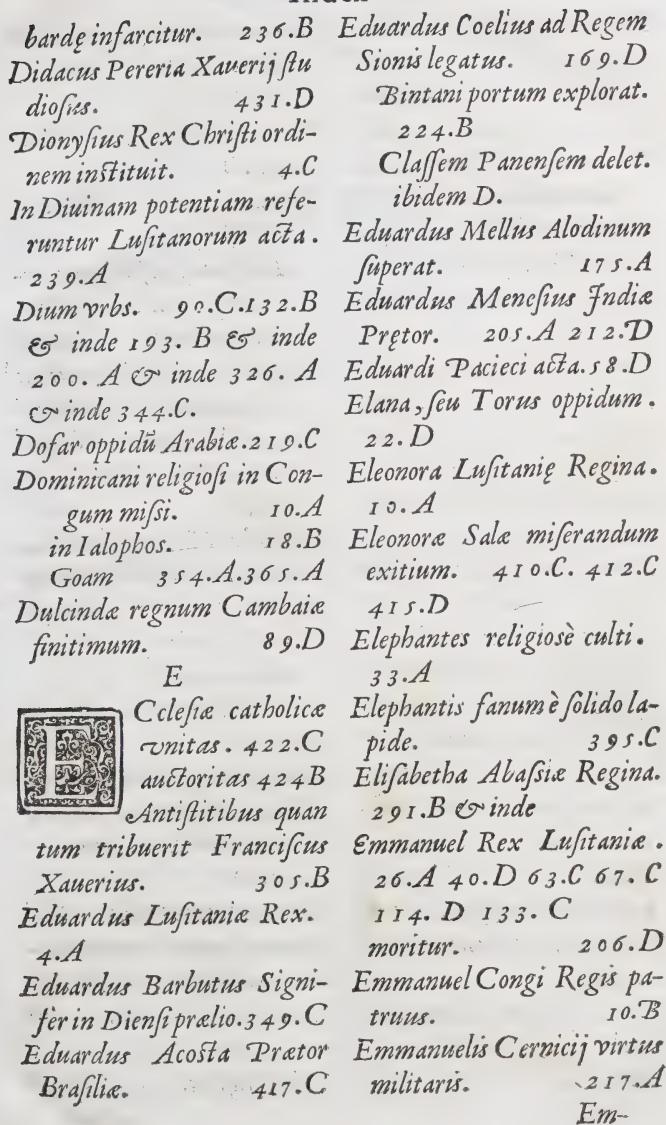 bardę infarcitur. 236.B
Didacus Pereria Xauerij ſtu
dioſus. 431.D
Dionyſius Rex Chriſti ordi-
nem inſtituit. 4.C
In Diuinam potentiam refe-
runtur Luſitanorum acta.
239.A
Dium vrbs. 90.C.132.B
& inde 193. B & inde
200. A & inde 326. A
& inde 344.C.
Dofar oppidū Arabiæ.219.C
Dominicani religioſi in Con-
gum miſsi. 10.A
in Ialophos. 18.B
Goam 354.A.365.A
Dulcindæ regnum Cambaiæ
finitimum. 89.D
E
ECcleſiæ catholicæ
vnitas. 422.C
auctoritas 424B
Antiſtitibus quan
tum tribuerit Franciſcus
Xauerius. 305.B
Eduardus Luſitaniæ Rex.
4.A
Eduardus Barbutus Signi-
fer in Dienſi prælio.349.C
Eduardus Acoſta Prætor
Braſiliæ. 417.C
Eduardus Coelius ad Regem
Sionis legatus. 169.D
Bintani portum explorat.
224.B
Claſſem Panenſem delet.
ibidem D.
Eduardus Mellus Alodinum
ſuperat. 175.A
Eduardus Meneſius Indiæ
Prętor. 205.A 212.D
Eduardi Pacieci acta.58.D
Elana, ſeu Torus oppidum.
22.D
Eleonora Luſitanię Regina.
10.A
Eleonoræ Salæ miſerandum
exitium. 410.C. 412.C
415.D
Elephantes religiosè culti.
33.A
Elephantis fanum è ſolido la-
pide. 395.C
Eliſabetha Abaſsiæ Regina.
291.B & inde
Emmanuel Rex Luſitaniæ.
26.A 40.D 63.C 67. C
114. D 133. C
moritur. 206.D
Emmanuel Congi Regis pa-
truus. 10.B
Emmanuelis Cernicij virtus
militaris. 217.A
Em-